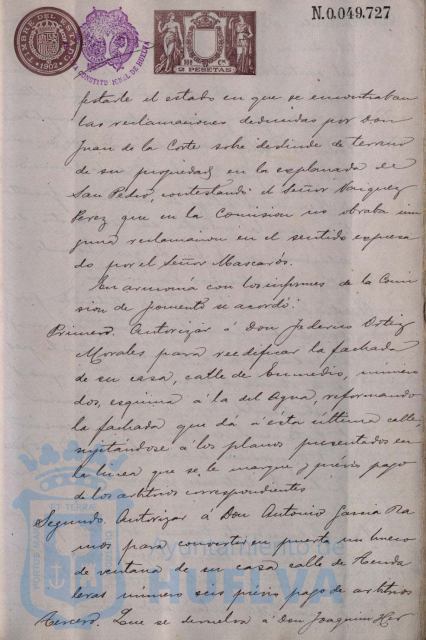 N.0.049.727
TIMBRE DEL ESTADO
1902
CONSTITUCIONAL DE HUELVA
2 PESETAS
festarle el estado en que se encontraban
las reclamaciones deducidas por Don
Juan de la Corte sobre deslinde de terreno
de su propiedad en la explanada de
San Pedro, contestando el Señor Vazquez
Perez que en la Comision no obraba nin
guna reclamacion en el sentido expresa
do por el Señor Mascarós.
En armonia con los informes de la Comi
sion de fomento se acordó:
Primero. Autorizar á Don Federico Ortiz
Morales para reedificar la fachada
de su casa, calle de Enmedio, número
dos, esquina á la del Agua, reformando
la fachada que dá á esta última calle,
sujetándose á los planos presentados en
la línea que se le marque y prévio pago
de los arbitrios correspondientes
Segundo. Autorizar á Don Antonio Garcia Ra
mos para convertir en puerta un hueco
de ventana de su casa calle de
número seis prévio pago de arbitrios
Tercero. Que se devuelva á Don Joaquin Her
Ayuntamiento de
HUELVA